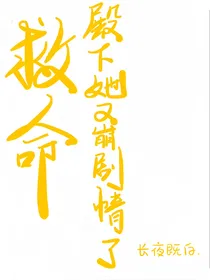 救命
殿下她又崩剧情了
长夜既白.